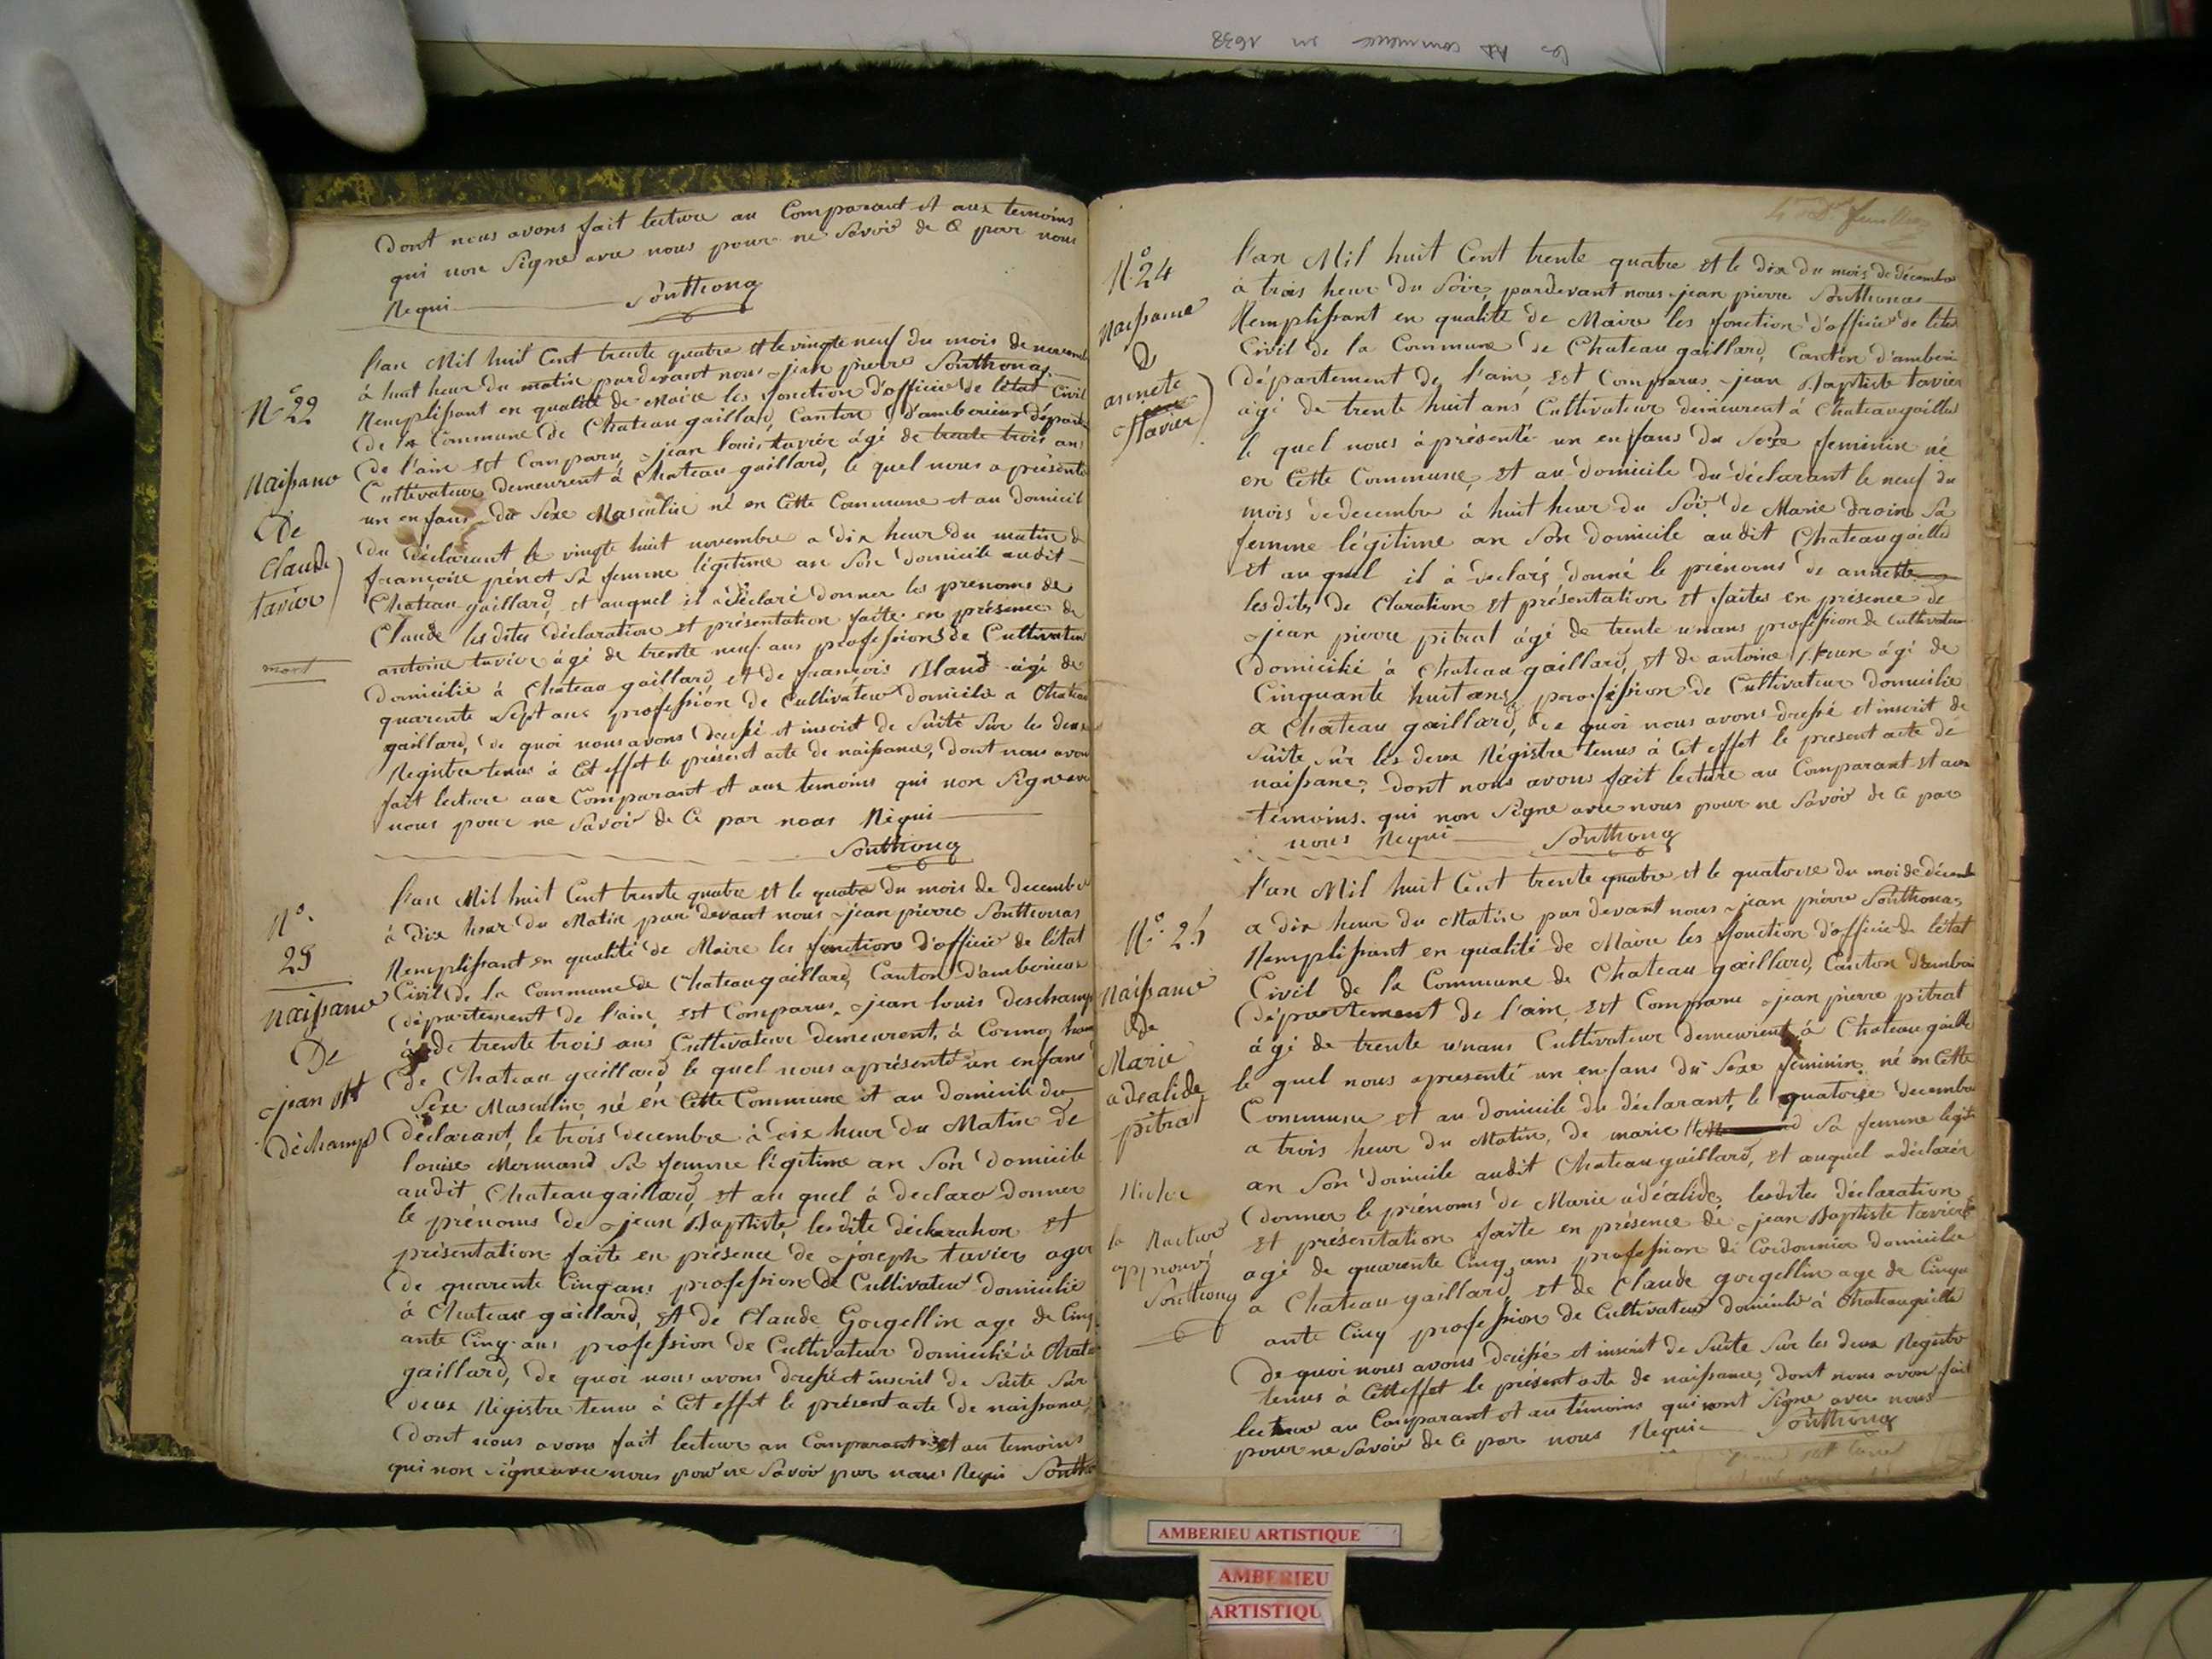 les AD commence en 1638
Dont nous avons fait lecture au Comparant et aux temoins
qui non Signe avec nous pour ne Savoir de Ce par nous
Requi Southonax
N° 22
Naissance
De
Claude
tavier
mort
l'an Mil huit Cent trente quatre et le vingte neuf du mois de novemb
à huit heur du matin pardevant nous jean pierre Southonax
Remplissant en qualité de Maire les fonction d'officier de l'état Civil
de la Commune de Chateaugaillard, Canton d'amberieux départe
de l'ain est Comparu, jean louis tavier âgé de trente trois ans
Cultivateur demeurent à Chateaugaillard, le quel nous a présenté
un enfans du Sexe Masculin né en Cette Commune et au domicil
du déclarant le vingte huit novembre a dix heur du matin de
françoise pénot Sa femme légitime an Son domicile audit
Château-gaillard, et auquel il a déclaré donner les prenoms de
Claude les dites déclaration et présentation faite en présence de
antoine tavier âgé de trente neuf ans profession de Cultivateur
domicilié à Château gaillard et de françois Bland âgé de
quarente Sept ans profession de Cultivateur domicilié a Chateau
gaillard, de quoi nous avons dressé et inscrit de Suite Sur les deux
Registre tenus à Cet effet le présent acte de naissance, dont nous avon
fait lecture aux Comparant et aux temoins qui non Signe avec
nous pour ne Savoir de Ce par nous Requi
Southonax
N°.
23
Naissance
De
jean Bte
déchamp
l'an Mil huit Cent trente quatre et le quatre du mois de Decembre
à dix heur du Matin par devant nous jean pierre Southonax
Remplissant en qualité de Maire les fonction d'officier de l'état
Civil de la Commune de Chateaugaillard, Canton d'amberieux
département de l'ain, est Comparu, jean louis deschamp
âgé de trente trois ans Cultivateur demeurent, à Cormoz, ham
de Chateau gaillard, le quel nous a présenté un enfans
Sexe Masculin, né en Cette Commune et au domicile du
déclarant, le trois decembre à dix heur du Matin de
louise Mermand Sa femme légitime an Son domicile
audit Chateaugaillard, et au quel à declaré donner
le prénoms de jean Baptiste, les dite déclaration et
présentation faite en présence de joseph tavier agé
de quarente Cinq ans profession de Cultivateur domicilié
à Chateau gaillard, et de Claude Gorgellin age de Cinq
ante Cinq ans profession de Cultivateur domicilié à Chate
gaillard, de quoi nous avons dressé et inscrit de Suite Sur
deux Régistre tenu à Cet effet le présent acte de naissance,
Dont nous avons fait lecture au Comparant et au temoins
qui non Signe avec nous pour ne Savoir par nous Requi Southo
N°. 24
Naissance
D
annete
tavier
l'an Mil huit Cent trente quatre et le dix du mois de décembre
à trois heur du Soir, pardevant nous jean pierre Southonax
Remplissant en qualité de Maire les fonction d'officier de l'état
Civil de la Commune de Chateau gaillard, Canton d'amberi
département de l'ain, est Comparu jean Baptiste tavier
âgé de trente huit ans Cultivateur demeurent à Chateaugaillard
le quel nous à présenté un enfans du Sexe feminin né
en Cette Commune, et au domicile du déclarant le neuf du
mois de decembre à huit heur du Soir de Marie droin Sa
femme légitime an Son domicile audit Chateaugaillard
et au quel il à déclaré, donné le prénoms de annette
les dits de Claration et présentation et faites en présence de
jean pierre pitrat âgé de trente un ans profession de Cultivateur
domicilié à Chateau gaillard, et de antoine âgé de
Cinquante huit ans, profession de Cultivateur domicilié
a Chateau gaillard, de quoi nous avons dressé et inscrit de
Suite Sur les deux Régistre tenus à Cet effet le present acte de
naissance. Dont nous avons fait lecture au Comparant et aux
temoins. qui non Signe avec nous pour ne Savoir de Ce par
nous Requi Southonax
N°. 25
Naissance
De
Marie
adealide
pitrat
la Rature
approuvé
Southonax
l'an Mil huit Cent trente quatre et le quatorze du moi de décemb
a dix heur du Matin par devant nous jean pierre Southonax
Remplissant en qualité de Maire les fonction d'officier de l'état
Civil de la Commune de Chateau gaillard, Canton d'amberi
département de l'ain, est Comparu jean pierre pitrat
âgé de trente un ans Cultivateur demeurent, à Chateaugailla
le quel nous a presenté un enfans du Sexe feminin, né en Cette
Commune et au domicile du déclarant, le quatorze decembre
a trois heur du Matin, de marie Sa femme legit
an Son domicile audit Chateaugaillard, et auquel a déclarér
donner le prénoms de Marie adéalide, lesdites déclaration
et présentation faite en présence de jean Baptiste tavier
agé de quarente Cinq ans profession de Cordonnier domicilié
a Chateau gaillard, et de Claude gorgellin age de Cinqu
ante Cinq profession de Cultivateur domicilié à Chateaugailla
De quoi nous avons dressé et inscrit de Suite Sur les deux Registre
tenus à Cett effet le présent acte de naissance, dont nous avon fait
lecture au Comparant et au témoins qui nont Signe avec nous
pour ne Savoir de Ce par nous Requi Southonax
AMBERIEU ARTISTIQUE
AMBERIEU
ARTISTIQU